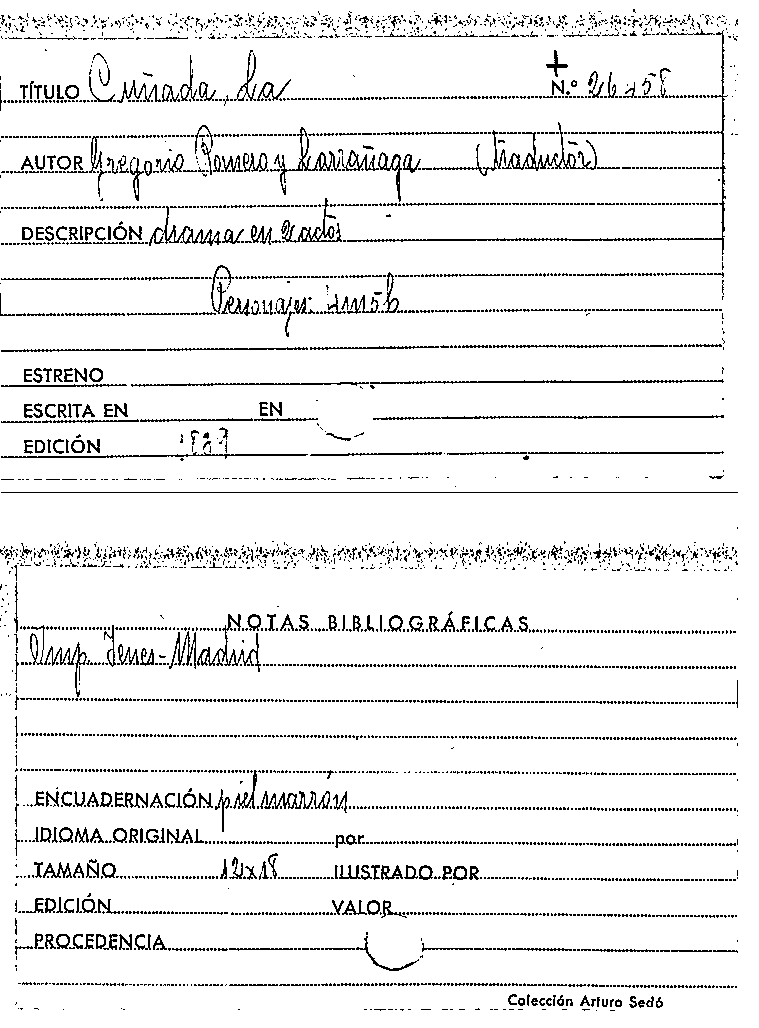 TÍTULO Cuñada, La
N.º 26458
AUTOR Gregorio Romero y Larrañaga (traductor)
DESCRIPCIÓN drama en 2 actos
Personajes: 4m5h
ESTRENO
ESCRITA EN EN
EDICIÓN 1837
NOTAS BIBLIOGRÁFICAS
Imp. Yenes-Madrid
ENCUADERNACIÓN piel marrón
IDIOMA ORIGINAL por
TAMAÑO 12x18 ILUSTRADO POR
EDICIÓN VALOR
PROCEDENCIA
Colección Arturo Sedó